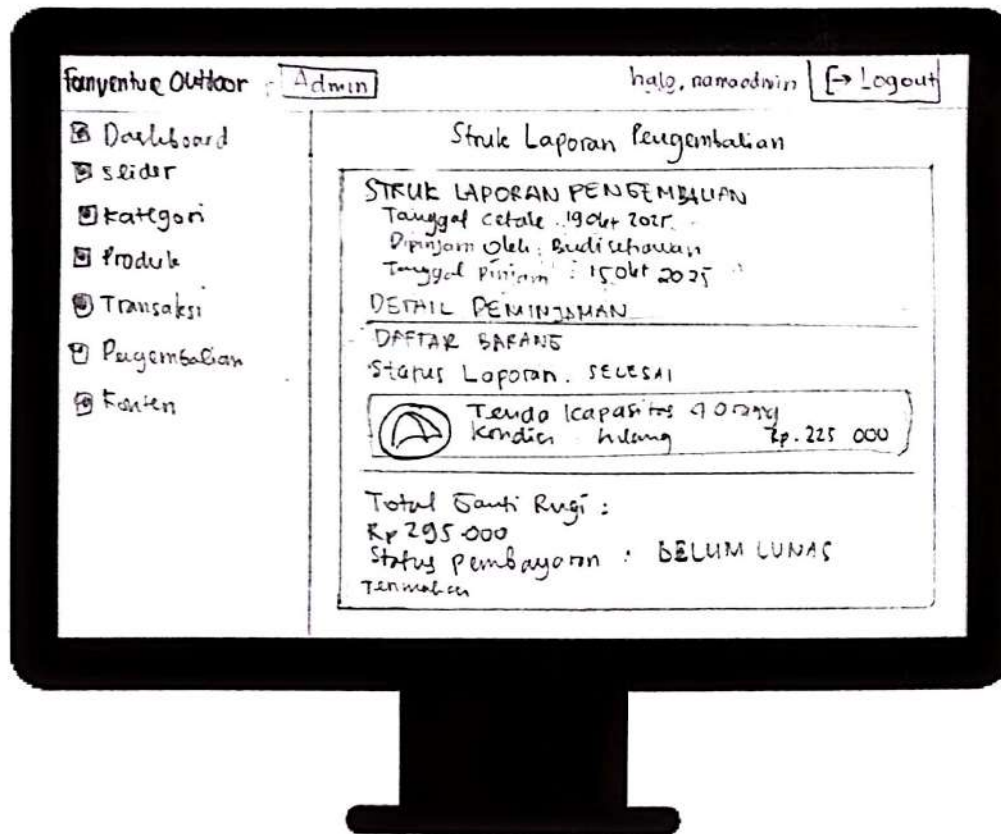 Fanventure Outdoor Admin
halo, namaadmin Logout
Dashboard
Slider
Kategori
Produk
Transaksi
Pengembalian
Konten
Struk Laporan Pengembalian
STRUK LAPORAN PENGEMBALIAN
Tanggal cetak : 19 Okt 2025
Dipinjam Oleh : Budi setiawan
Tanggal pinjam : 15 Okt 2025
DETAIL PEMINJAMAN
DAFTAR BARANG
Status Laporan. SELESAI
Tenda kapasitas 4 orang
Kondisi : hilang Rp. 225 000
Total Ganti Rugi :
Rp 295.000
Status pembayaran : BELUM LUNAS